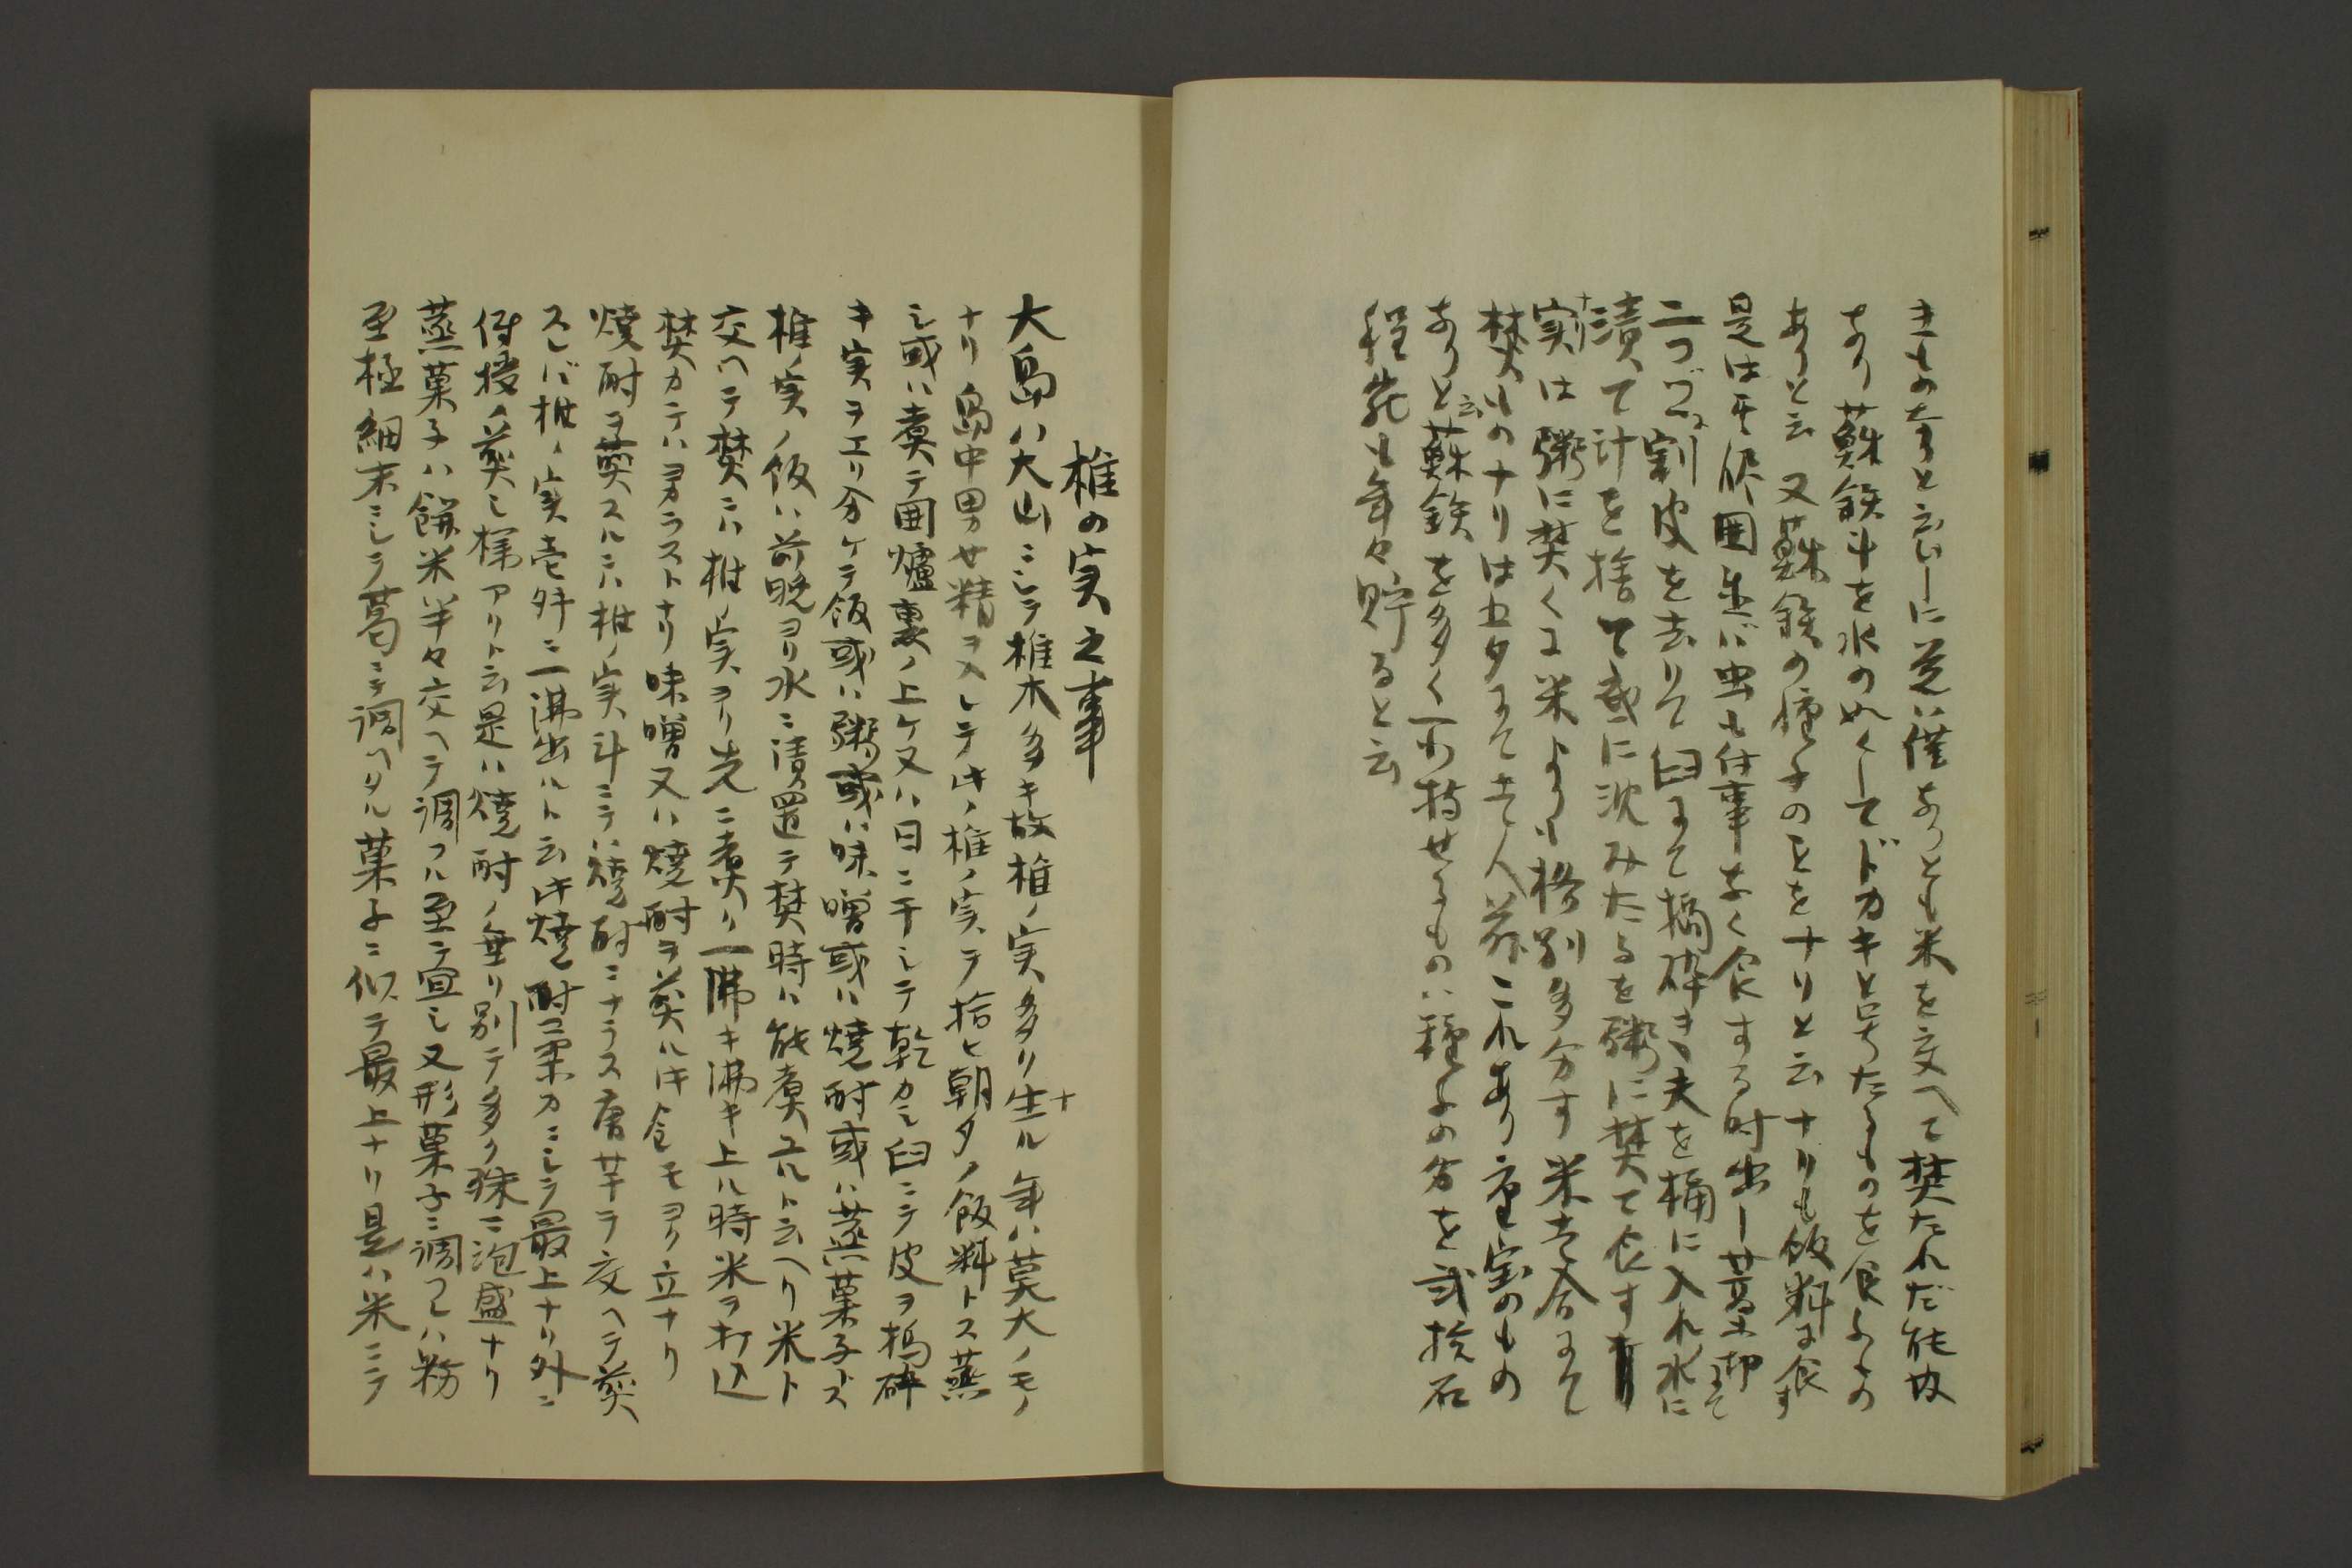 きものなりと云いーに是ハ僅なりとも米を交へて焚たれだ能故
なり蘇鉄斗を水の如くしてドガキと号たるものを食よの
ありと云又蘇鉄の種子のことをナリと云ナリも飯料に食す
是は其侭囲置バ虫も仕事なく食する時出し菜切にて
二つづゝ割皮を去りて臼にて搗砕き夫を桶に入れ水に
漬て汁を捨て底に沈みたるを粥に焚て食すナリ
実は粥に焚くに米よりも格別多分す米壱合にて
焚ものナリは五夕にて壱人前これあり重宝のもの
ありと云蘇鉄を多く所持せるものハ種子の方を弐拾石
程宛も年々貯ると云
椎の実之事
大島ハ大山ニシテ椎木多キ故椎ノ実多ナリ生ル年ハ莫大ノモノ
ナリ島中男女精ヲ入レテ此ノ椎ノ実ヲ拾ヒ朝夕ノ飯料トス蒸
シ或ハ煮テ囲爐裏ノ上ケ又ハ日ニ干シテ乾カシ臼ニテ皮ヲ搗砕
キ実ヲエリ分ケテ飯或ハ粥或ハ味噌或ハ焼酎或ハ蒸菓子トス
椎ノ実ノ飯ハ前晩ヨリ水ニ漬置テ焚時ハ能煮ユルト云ヘリ米ト
交ヘテ焚ニハ椎ノ実ヨリ先ニ煮ハリ一沸キ沸キ上ル時米ヲ打込
焚カテハヨカラストナリ味噌又ハ焼酎ヲ煎ルニモヨク立ナリ
焼酎ヲ煎スルニハ椎ノ実斗ニテハ焼酎ニナラス唐芋ヲ交ヘテ煎
スレバ椎ノ実壱升ニ一沸出ルト云此焼酎柔カニシテ最上ナリ外ニ
侍接ノ煎シ様アリト云是ハ焼酎ノ垂リ別テ多ク殊ニ泡盛ナリ
蒸菓子ハ餅米半々交ヘテ調フル至テ宜シ又形菓子ニ調フレハ粉
至極細末ニシテ葛ニテ調ヘタル菓子ニ似テ最上ナリ是ハ米ニテ